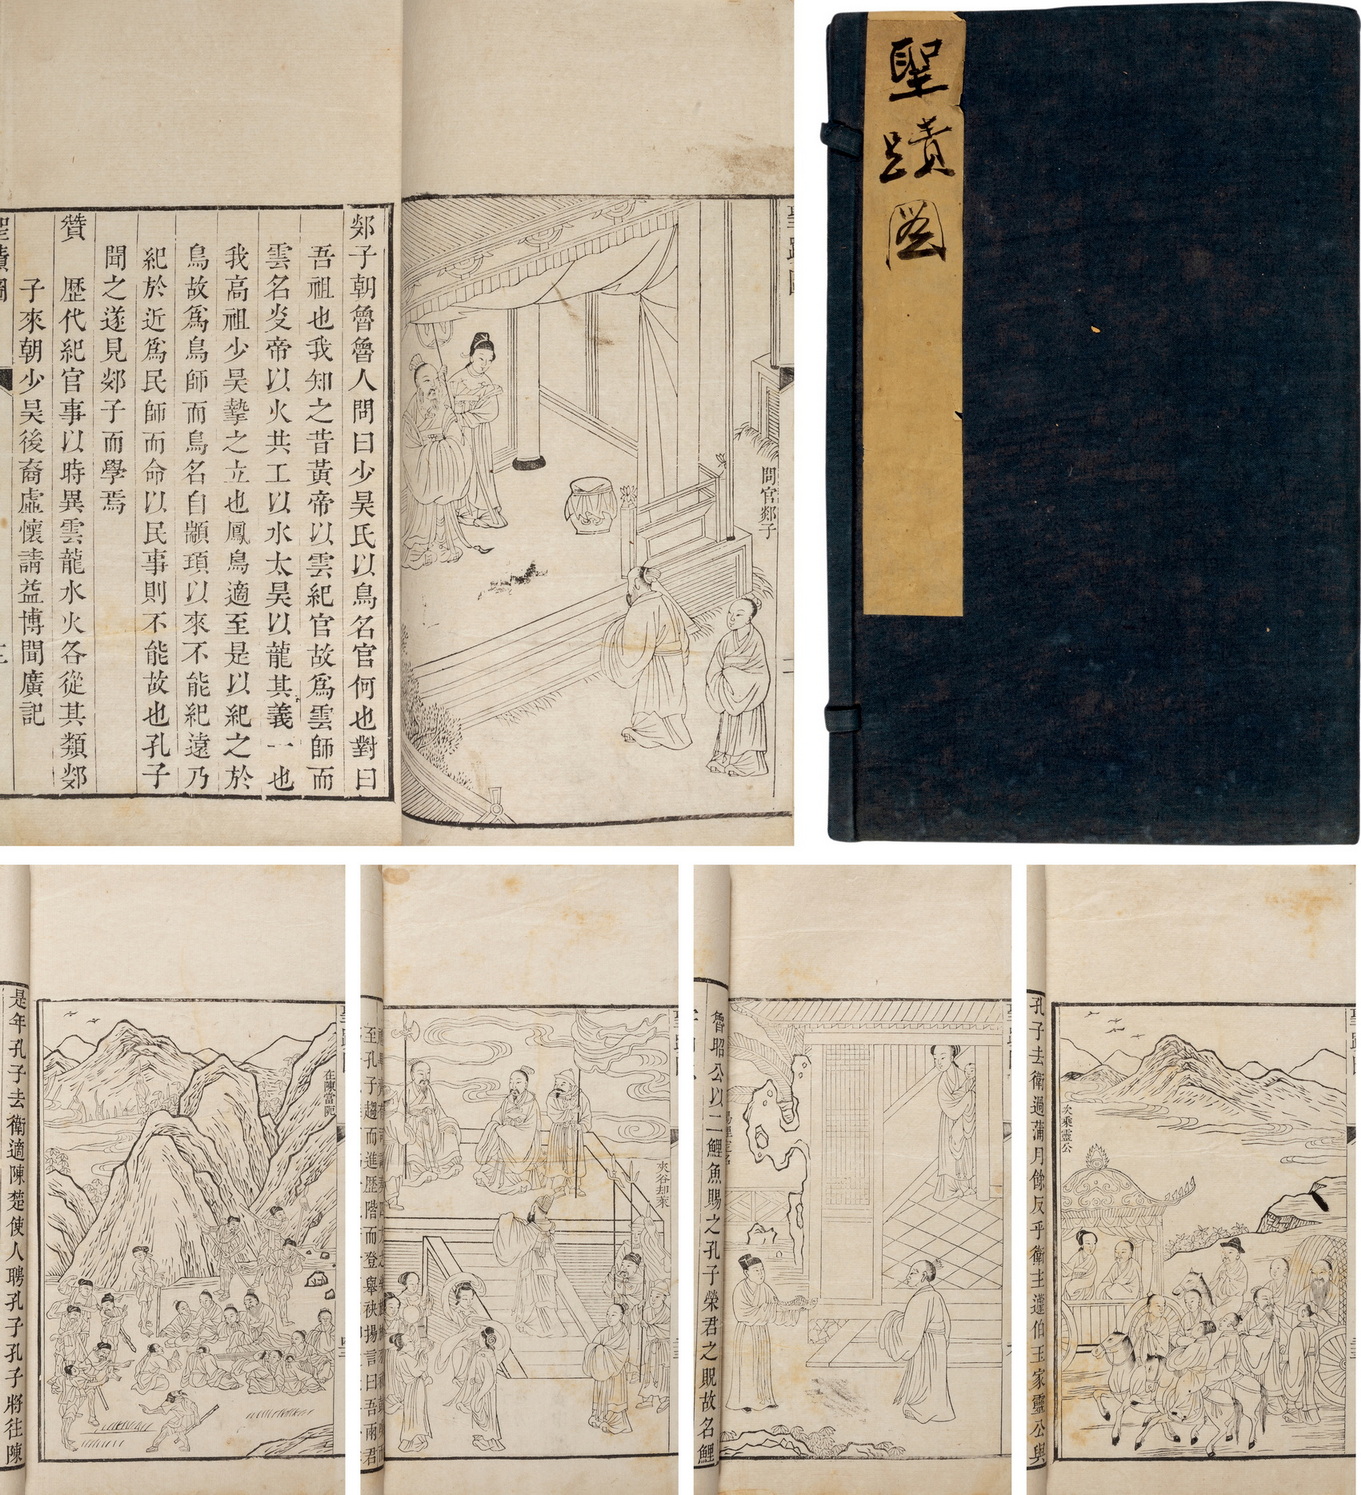 郯子朝魯魯人問曰少昊氏以鳥名官何也對曰
吾祖也我知之昔黃帝以雲紀官故爲雲師而
雲名炎帝以火共工以水太昊以龍其義一也
我高祖少昊摯之立也鳳鳥適至是以紀之於
鳥故爲鳥師而鳥名自顓頊以來不能紀遠乃
紀於近爲民師而命以民事則不能故也孔子
聞之遂見郯子而學焉
贊 歷代紀官事以時異雲龍水火各從其類郯
子來朝少昊後裔虛懷請益博聞廣記
聖蹟圖
問官郯子
聖蹟圖
是年孔子去衛適陳楚使人聘孔子孔子將往陳
在陳當阨
至孔子趨而進歷階而登舉袂揚言曰吾兩君
夾谷却萊
魯昭公以二鯉魚賜之孔子榮君之貺故名鯉
孔子去衛過蒲月餘反乎衛主蘧伯玉家靈公與
次乘靈公